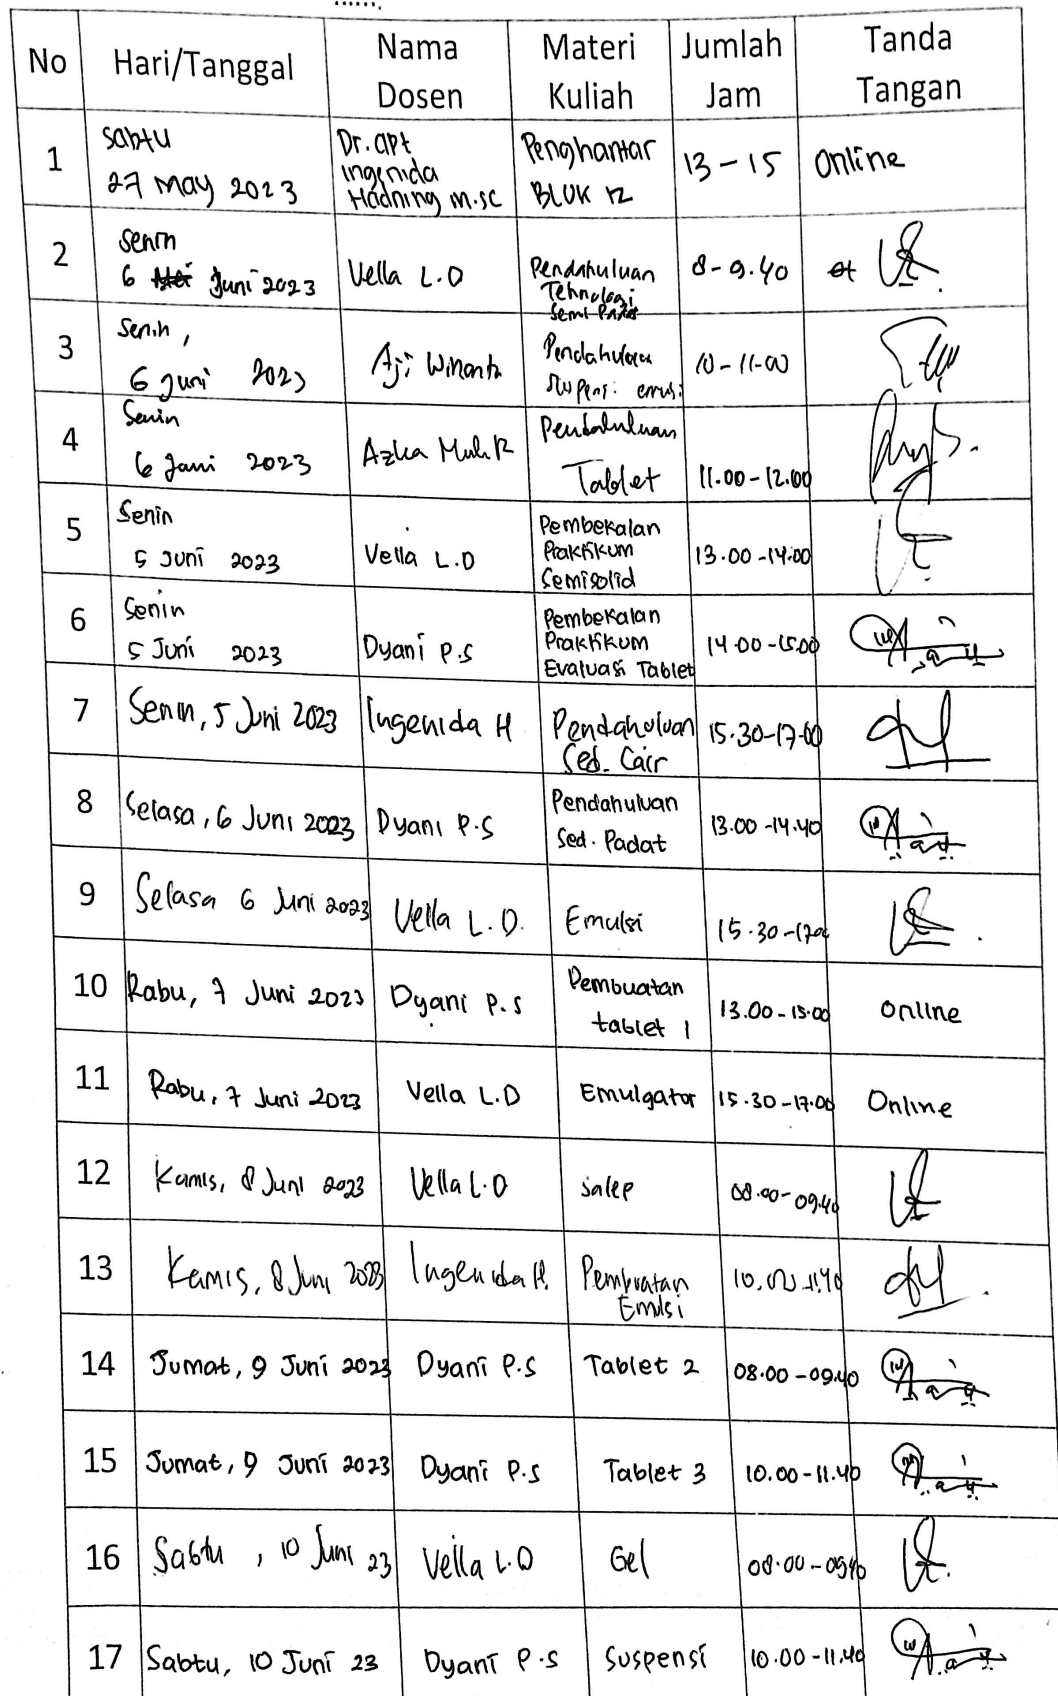 No Hari/Tanggal Nama Dosen Materi Kuliah Jumlah Jam Tanda Tangan
1 Sabtu 27 May 2023 Dr. apt Ingenida Hadning M.Sc Penghantar BLOK 12 13 - 15 Online
2 Senin 6 Juni 2023 Vella L.D Pendahuluan Teknologi Semi Padat 8 - 9.40
3 Senin, 6 Juni 2023 Aji Winanta Pendahuluan Suspensi emulsi 10 - 11.00
4 Senin 6 Juni 2023 Azka Muh. R Pendahuluan Tablet 11.00 - 12.00
5 Senin 5 Juni 2023 Vella L.D Pembekalan Praktikum Semisolid 13.00 - 14.00
6 Senin 5 Juni 2023 Dyani P.S Pembekalan Praktikum Evaluasi Tablet 14.00 - 15.00
7 Senin, 5 Juni 2023 Ingenida H Pendahuluan Sed. Cair 15.30 - 17.00
8 Selasa, 6 Juni 2023 Dyani P.S Pendahuluan Sed. Padat 13.00 - 14.40
9 Selasa 6 Juni 2023 Vella L.D. Emulsi 15.30 - 1700
10 Rabu, 7 Juni 2023 Dyani P.S Pembuatan tablet 1 13.00 - 15.00 online
11 Rabu, 7 Juni 2023 Vella L.D Emulgator 15.30 - 17.00 Online
12 Kamis, 8 Juni 2023 Vella L.D salep 08.00 - 09.40
13 Kamis, 8 Juni 2023 Ingenida H. Pembuatan Emulsi 10.00 - 11.40
14 Jumat, 9 Juni 2023 Dyani P.S Tablet 2 08.00 - 09.40
15 Jumat, 9 Juni 2023 Dyani P.S Tablet 3 10.00 - 11.40
16 Sabtu, 10 Juni 23 Vella L.D Gel 08.00 - 09.40
17 Sabtu, 10 Juni 23 Dyani P.S Suspensi 10.00 - 11.40